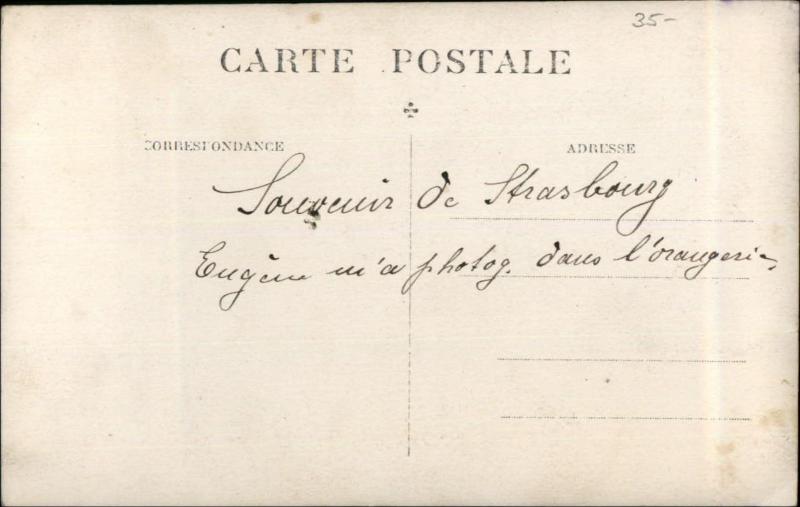 35-
CARTE POSTALE
CORRESPONDANCE
ADRESSE
Souvenir de Strasbourg
Eugène m'a photog. dans l'orangerie,